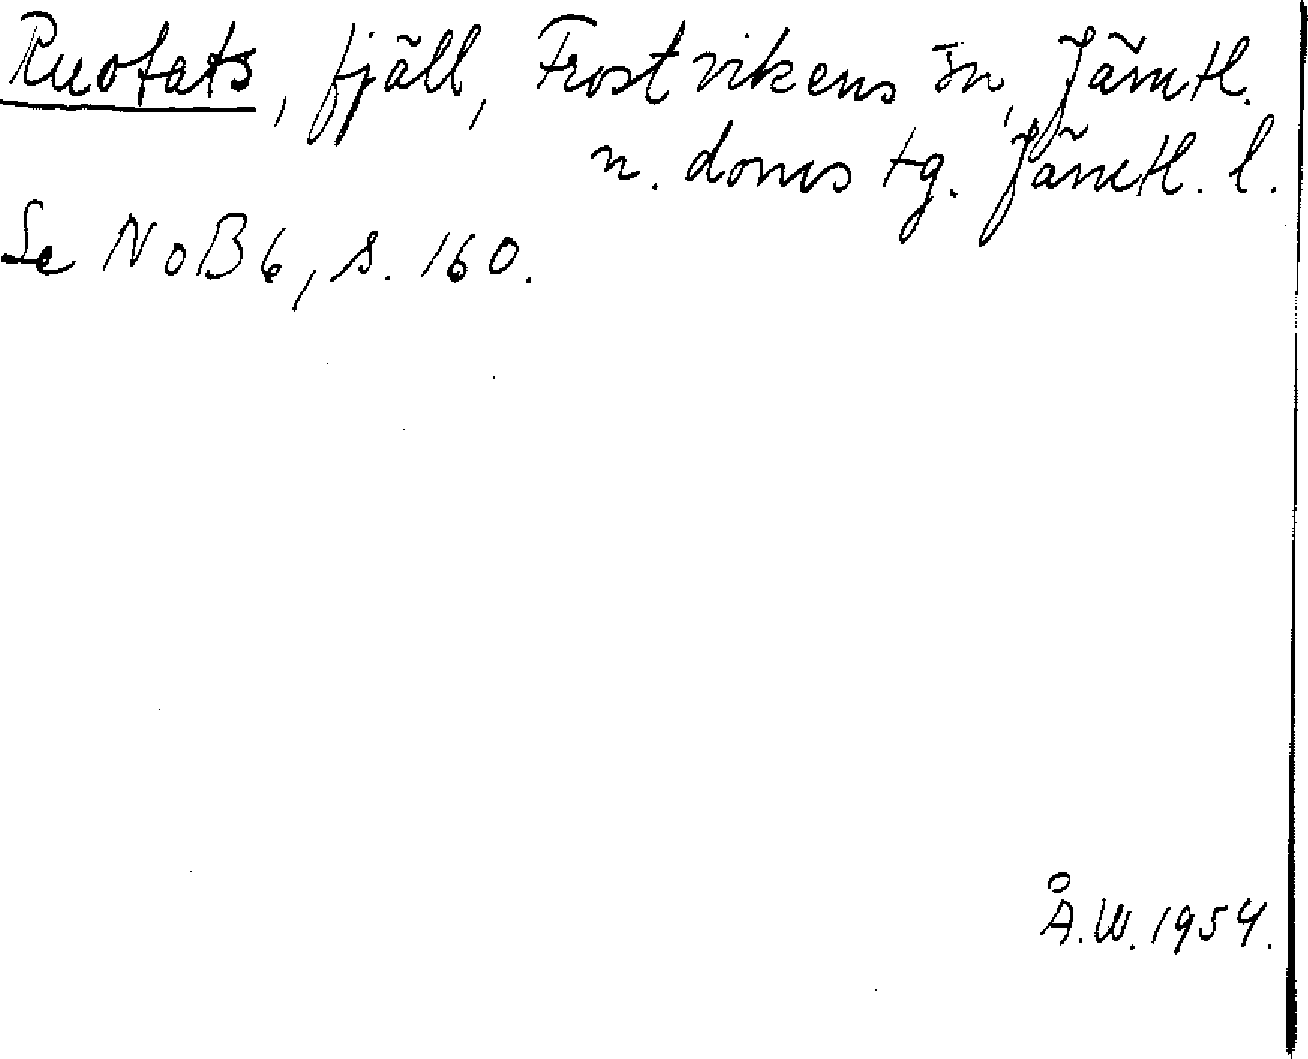 Ruotats, fjäll, Frostvikens sn, Jämtl.
n. doms tg. Jämtl. l.
Se NoB 6, s. 160.
Å.W. 1954.